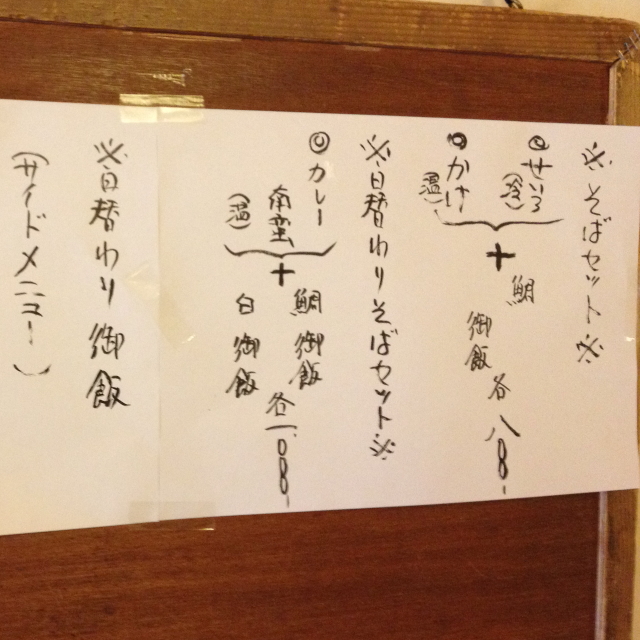 ※そばセット※
◎せいろ
(冷)
◎かけ
(温)
+
鯛
御飯
各八〇〇-
※日替わりそばセット※
◎カレー
南蛮
(温)
+
鯛御飯
白御飯
各一〇〇〇-
※日替わり御飯
(サイドメニュー)